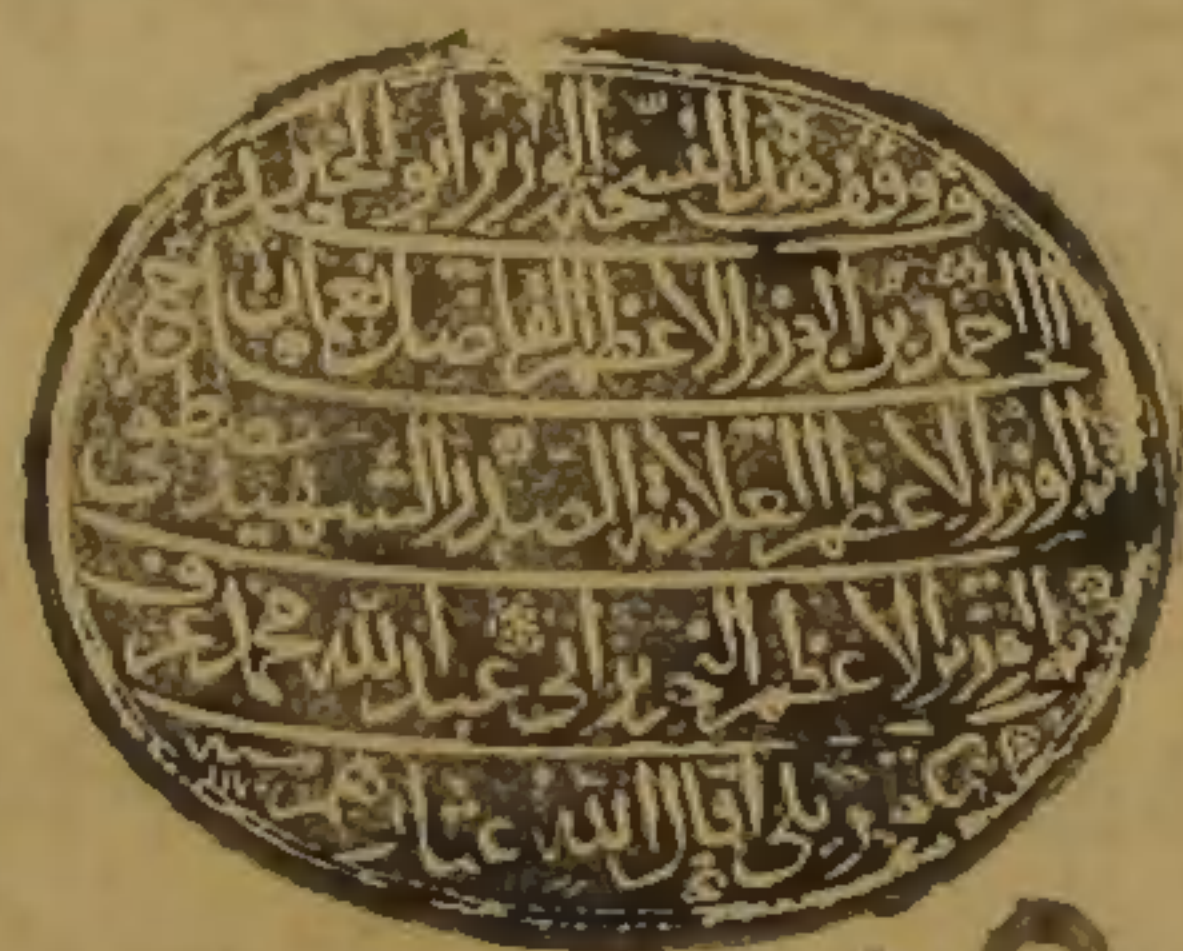 و وقف هذه النسخة الوزير ابو الخير
احمد بن الوزير الاعظم الفاضل نعمان
بن الوزير الاعظم العلامة الصدر الشهيد مصطفى
بن الوزير الاعظم الخبير ابى عبد الله محمد عرف
بكوپريلى اقال الله عثارهم